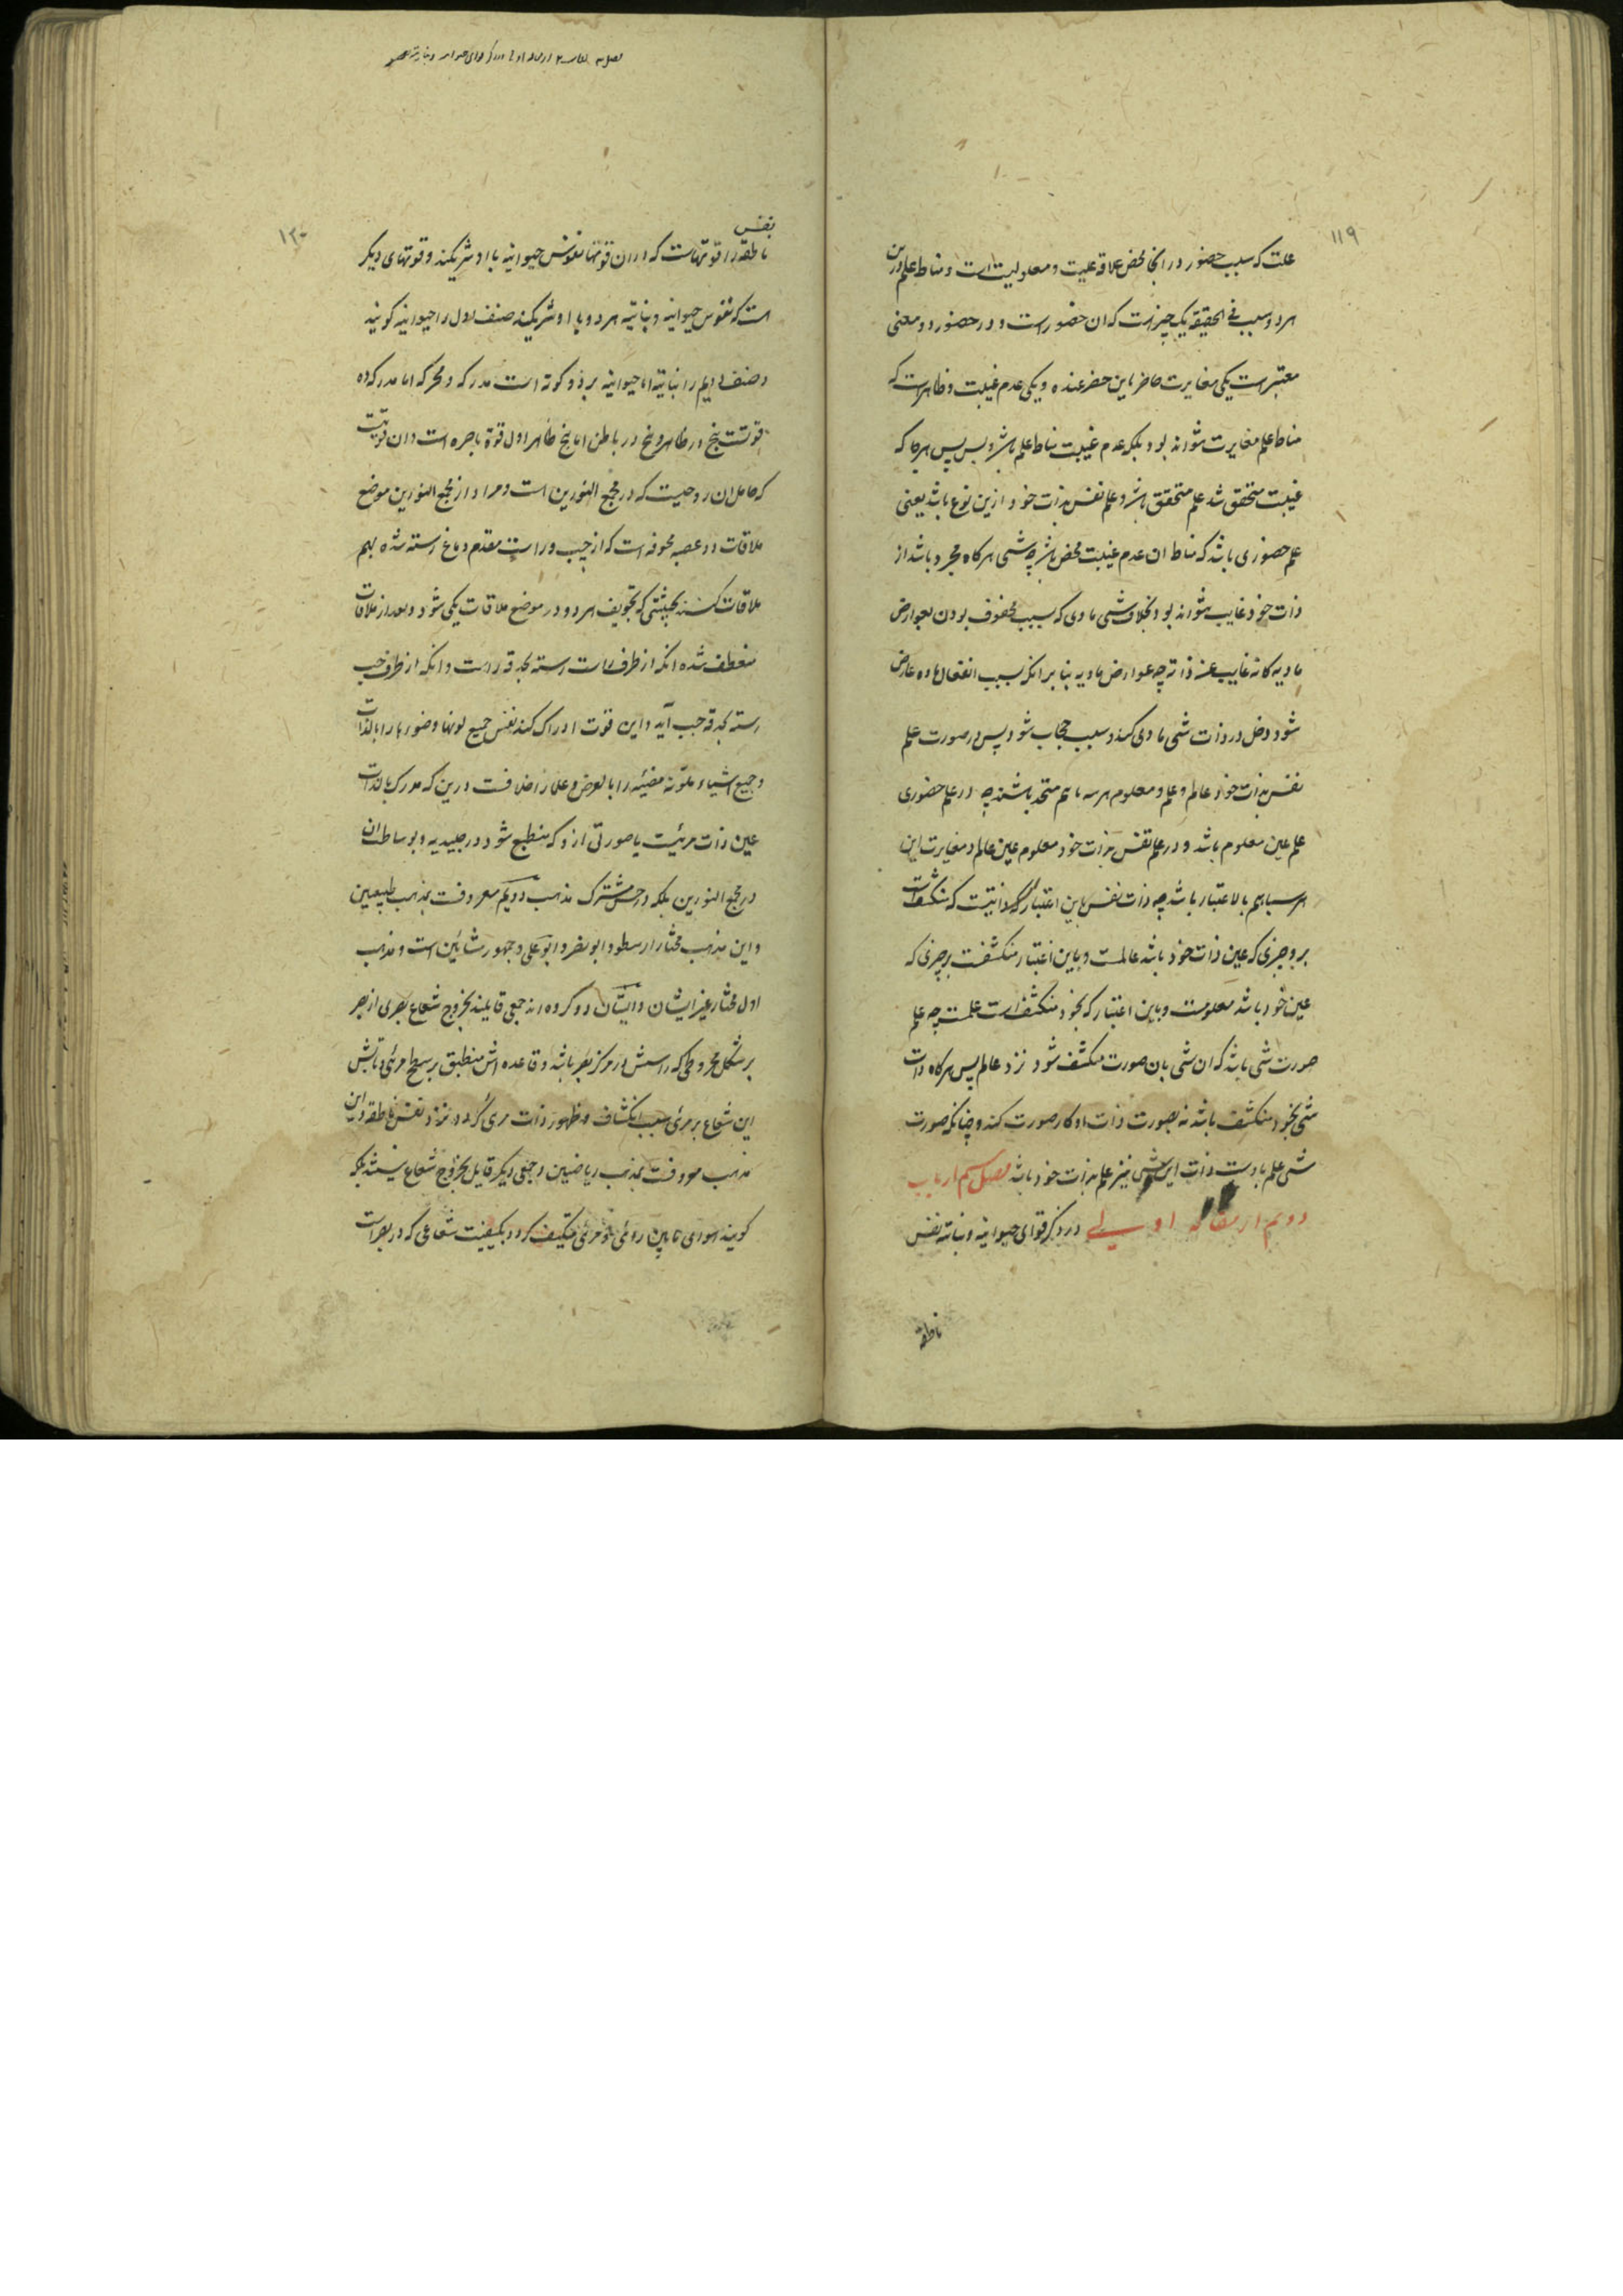 ۱۱۹
علت که سبب حضور در انجا محض علاقه علیت و معلولیت است و مناط علم درین
هر دو سبب فی الحقیقه یک چیزست که ان حضور است و در حضور دو معنی
معتبر است یکی مغایرت حاضر با من حضر عنده و یکی عدم غیبت و ظاهر است که
مناط علم مغایرت نتواند بود بلکه عدم غیبت مناط علم باشد و بس پس هرجا که
غیبت متحقق شد علم متحقق باشد و علم نفس بذات خود ازین نوع باشد یعنی
علم حضوری باشد که مناط ان عدم غیبت محض باشد چه شیی هرکاه مجرد باشد از
ذات خود غایب نتواند بود بخلاف شیی مادی که بسبب محفوف بودن بعوارض
مادیه کانه غایب عند ذاته چه عوارض مادیه بنا بر انکه بسبب انفعال ماده عارض
شود دخل در ذات شیی مادی کند و سبب حجاب شود پس در صورت علم
نفس بذات خود عالم و علم و معلوم هر سه با هم متحد باشند چه در علم حضوری
علم عین معلوم باشد و در علم نفس بذات خود معلوم عین عالم و مغایرت این
هر سه باهم بالاعتبار باشد چه ذات نفس باین اعتبار که ذاتیست که منکشفست
برو چیزی که عین ذات خود باشد عالمست و باین اعتبار منکشفست بر چیزی که
عین خود باشد معلومست و باین اعتبار که بخود منکشف است علمست چه علم
صورت شی باشد که ان شی بان صورت منکشف شود نزد عالم پس هرکاه ذات
شی بخود منکشف باشد نه بصورت ذات او کار صورت کند و چنانکه صورت
شی علم باوست ذات این شی نیز علم بذات خود باشد فصل سیم از باب
دویم از مقاله اولی در ذکر قوای حیوانیه و نباتیه نفس
ناطقه
۱۲۰
نفس
ناطقه را قوتهاست که در ان قوتها نفوس حیوانیه با او شریکند و قوتهای دیکر
است که نفوس حیوانیه و نباتیه هر دو با او شریکند صنف اول را حیوانیه کویند
و صنف دویم را نباتیه اما حیوانیه بر دو کونه است مدرکه و محرکه اما مدرکه ده
قوتست پنج در ظاهر و پنج در باطن اما پنج ظاهر اول قوة باصره است و ان قوتیست
که حامل ان روحیست که در مجمع النورین است و مراد از مجمع النورین موضع
ملاقات دو عصبه مجوفه است که از چپ و راست مقدم دماغ رسته شده بهم
ملاقات کنند بحیثیتی که تجویف هر دو در موضع ملاقات یکی شود و بعد از ملاقات
منعطف شده انکه از طرف راست رسته بحدقه راست و انکه از طرف چپ
رسته بحدقه چپ آید و این قوت ادراک کند نفس جمیع لونها و ضوءها را بالذات
و جمیع اشیاء ملونه مضیئه را بالعرض و علما را خلافست درین که مدرک بالذات
عین ذات مرئیست یا صورتی ازو که منطبع شود در جلیدیه و بوساطت ان
در مجمع النورین بلکه در حس مشترک مذهب دویم معروفست بمذهب طبیعیین
و این مذهب مختار ارسطو و ابو نصر و ابو علی و جمهور مشائین است و مذهب
اول مختار غیر ایشان و ایشان دو کروه اند جمعی قایلند بخروج شعاع بصری از بصر
بر شکل مخروطی که راسش در مرکز بصر باشد و قاعده اش منطبق بر سطح مرئی و تابش
این شعاع بر مرئی سبب انکشاف و ظهور ذات مرئی کردد نزد نفس ناطقه و این
مذهب معروفست بمذهب ریاضیین و جمعی دیکر قایل بخروج شعاع نیستند بلکه
کویند هوای مابین رائی و مرئی متکیف کردد بکیفیت شعاعی که در بصر است